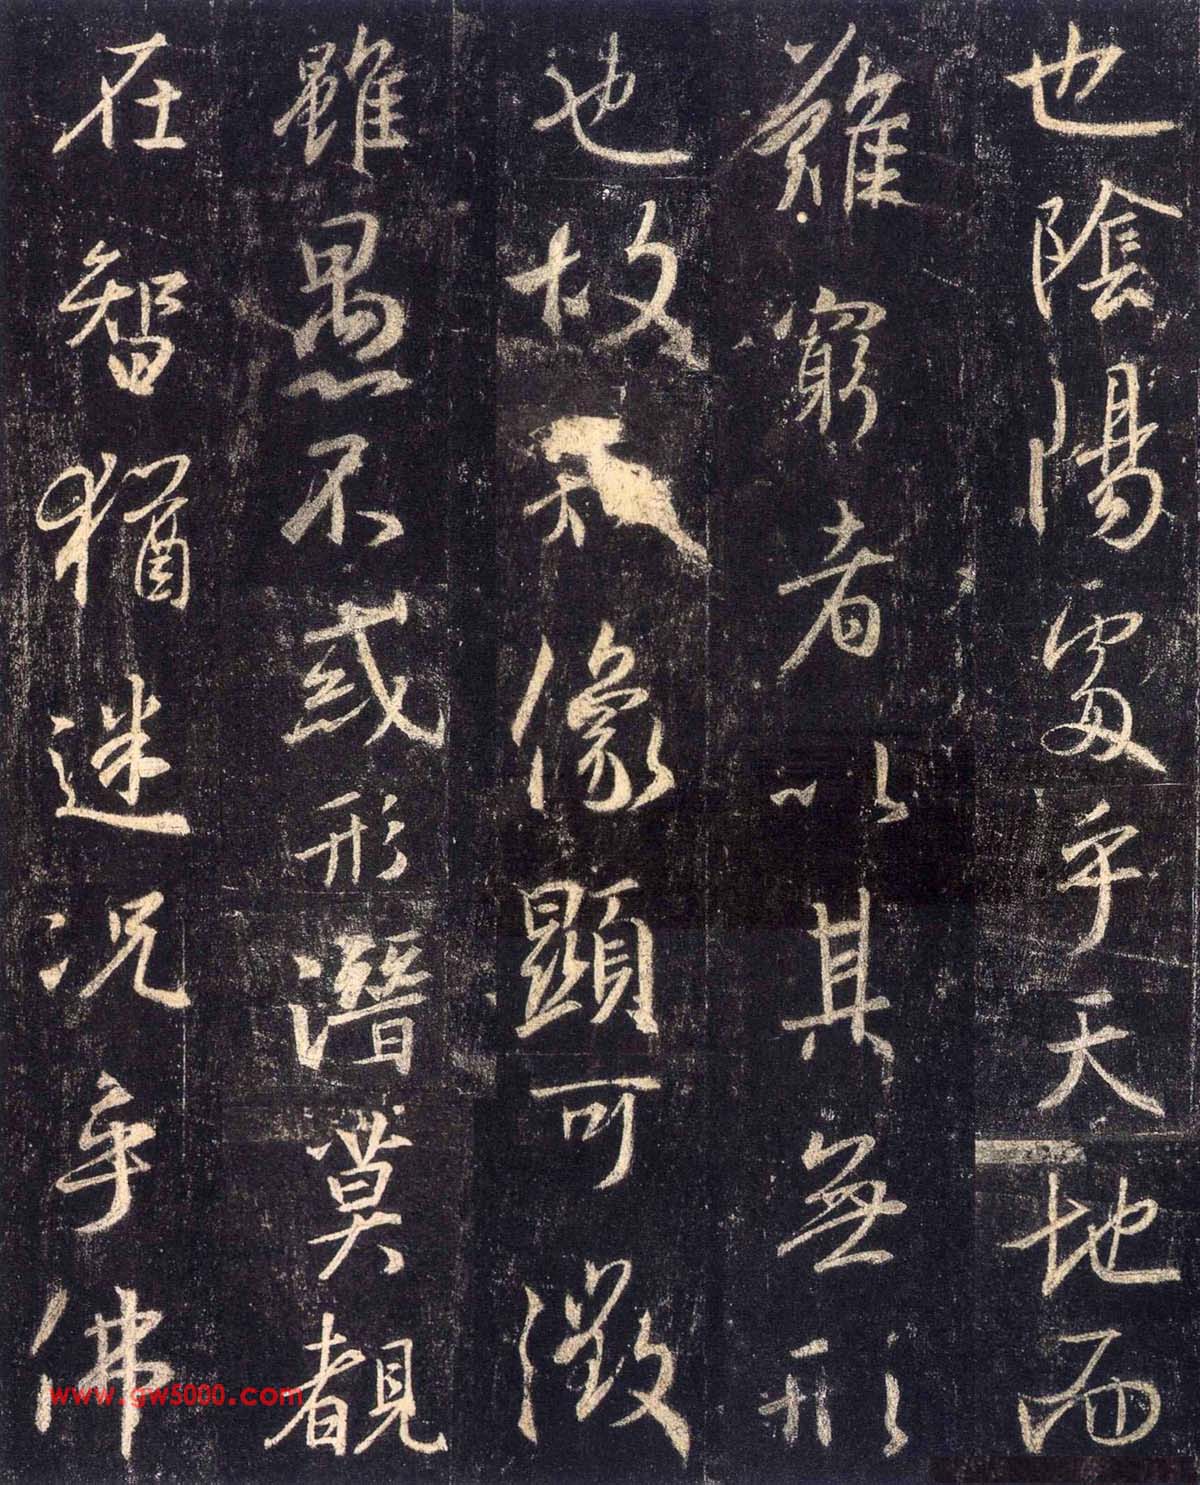 也陰陽處乎天地而
難窮者以其無形
也故知像顯可徵
雖愚不惑形潛莫覩
在智猶迷況乎佛
www.gw5000.com